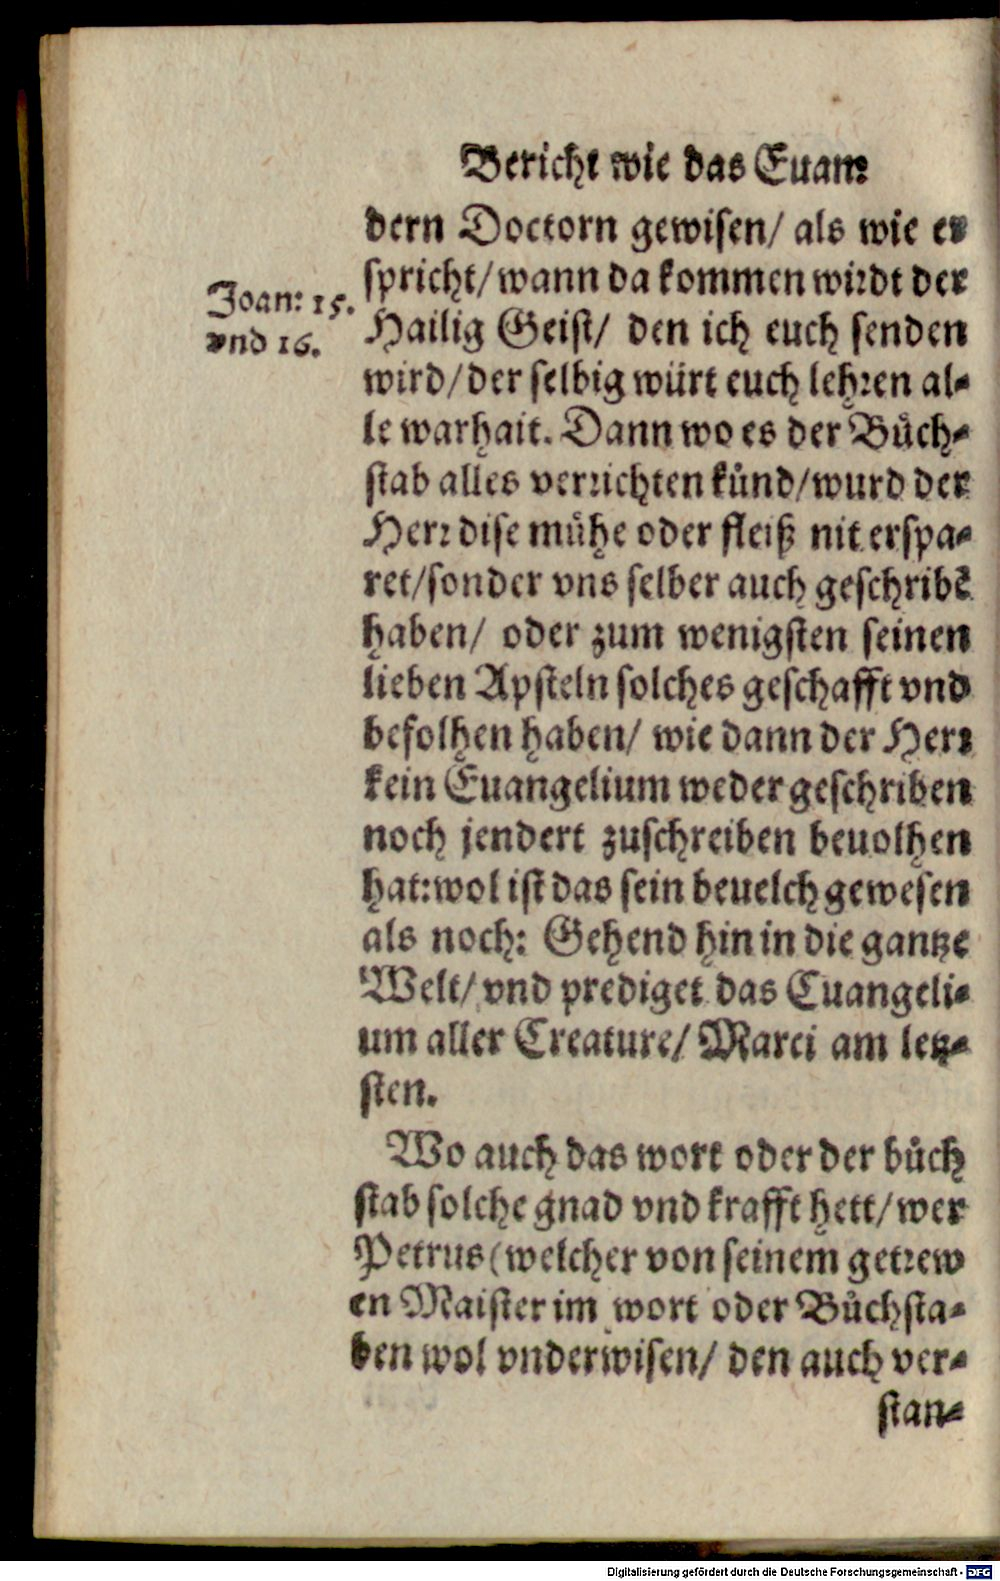 Bericht wie das Euan:
dern Doctorn gewisen/ als wie er
spricht/ wann da kommen wirdt der
Joan: 15.
vnd 16.
Hailig Geist/ den ich euch senden
wird/ der selbig würt euch lehren al-
le warhait. Dann wo es der Bůch-
stab alles verrichten künd/ wurd der
Herr dise mühe oder fleiß nit erspa-
ret/ sonder vns selber auch geschribẽ
haben/ oder zum wenigsten seinen
lieben Apsteln solches geschafft vnd
befolhen haben/ wie dann der Herr
kein Euangelium weder geschriben
noch jendert zuschreiben beuolhen
hat: wol ist das sein beuelch gewesen
als noch: Gehend hin in die gantze
Welt/ vnd prediget das Euangeli-
um aller Creature/ Marci am letz-
sten.
Wo auch das wort oder der bůch
stab solche gnad vnd krafft hett/ wer
Petrus (welcher von seinem getrew
en Maister im wort oder Bůchsta-
ben wol vnderwisen/ den auch ver-
stan-
Digitalisierung gefördert durch die Deutsche Forschungsgemeinschaft - DFG